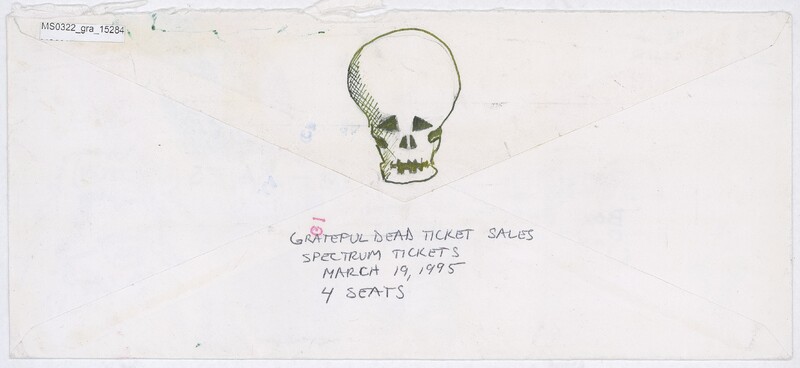 MS0322_gra_15284
GRATEFUL DEAD TICKET SALES
SPECTRUM TICKETS
MARCH 19, 1995
4 SEATS